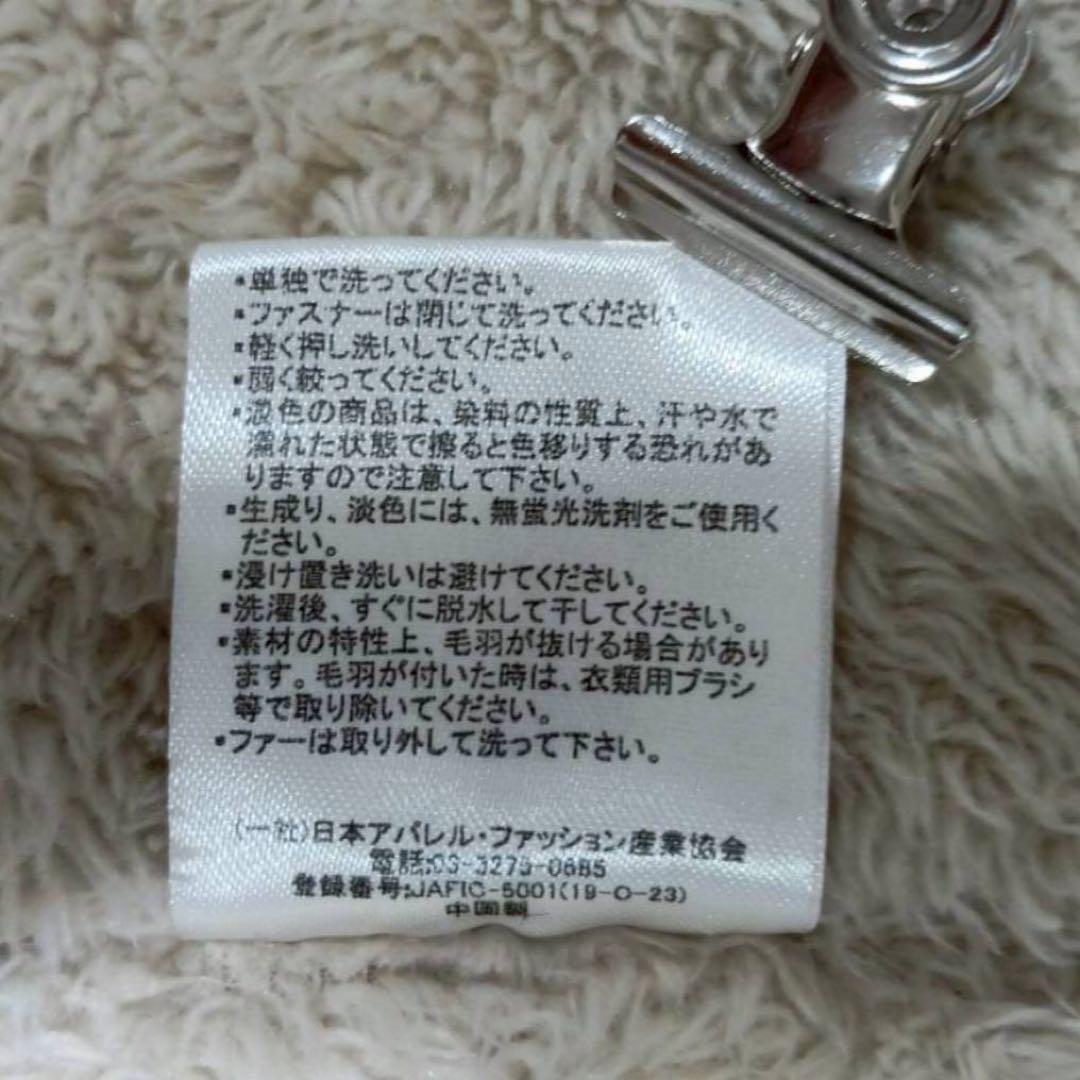 ・単独で洗ってください。
・ファスナーは閉じて洗ってください。
・軽く押し洗いしてください。
・弱く絞ってください。
・淡色の商品は、染料の性質上、汗や水で
濡れた状態で擦ると色移りする恐れがあ
りますので注意して下さい。
・生成り、淡色には、無蛍光洗剤をご使用く
ださい。
・浸け置き洗いは避けてください。
・洗濯後、すぐに脱水して干してください。
・素材の特性上、毛羽が抜ける場合があり
ます。毛羽が付いた時は、衣類用ブラシ
等で取り除いてください。
・ファーは取り外して洗って下さい。
(一社)日本アパレル・ファッション産業協会
電話:03-3275-0685
登録番号:JAFIC-5001(19-O-23)
中国製